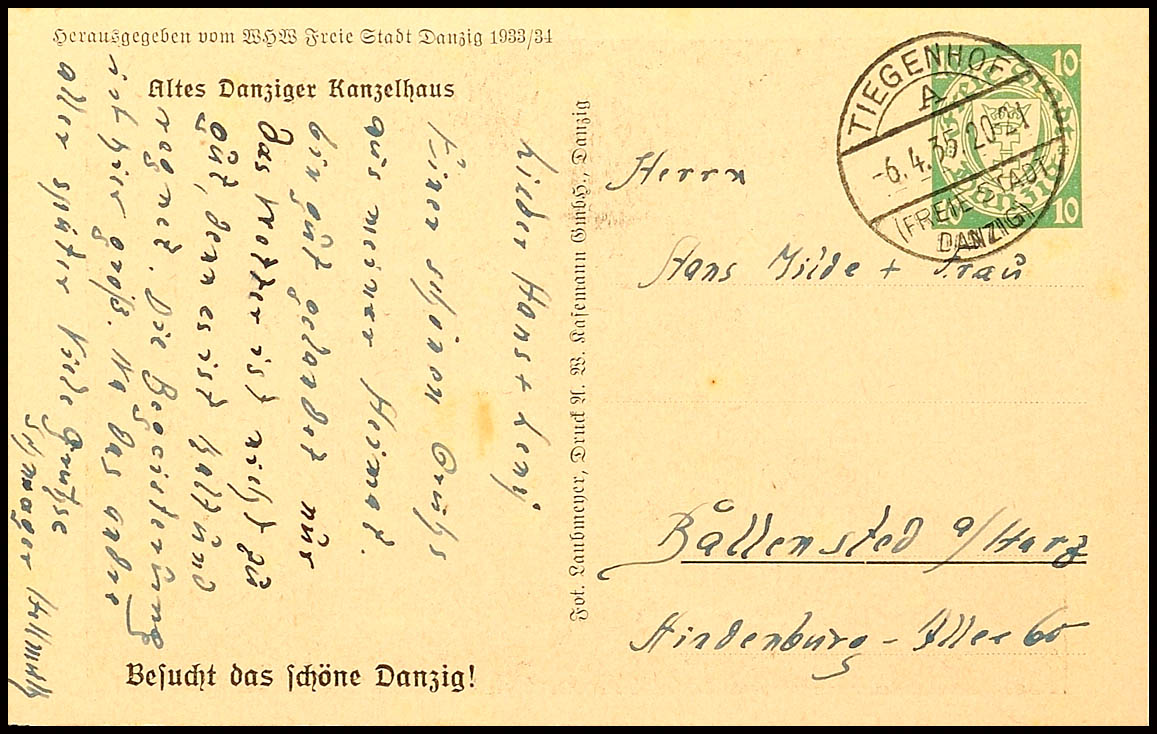 Herausgegeben vom WHW Freie Stadt Danzig 1933/34
Altes Danziger Kanzelhaus
Lieber Hans + Leny
Einen schönen Gruß
aus meiner Heimat.
bin gut gelandet nur
das Wetter ist nicht zu
gut, denn es ist kalt und
regnet. Die Begeisterung
ist hier groß. Na das andre
alles später Viele Grüße
Schwager Hellmuth
Besucht das schöne Danzig!
Fot. Laubmeyer, Druck A. W. Kafemann GmbH., Danzig
TIEGENHOF
A
-6.4.35.20-21
(FREIE STADT
DANZIG)
10
10
Herrn
Hans Milde + Frau
Ballensted a/Harz
Hindenburg-Allee 60